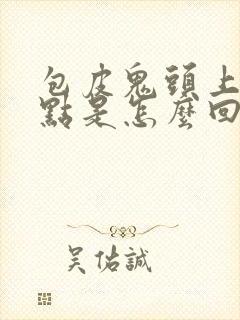 包皮鬼頭上
點是怎麼回
吴佑誠